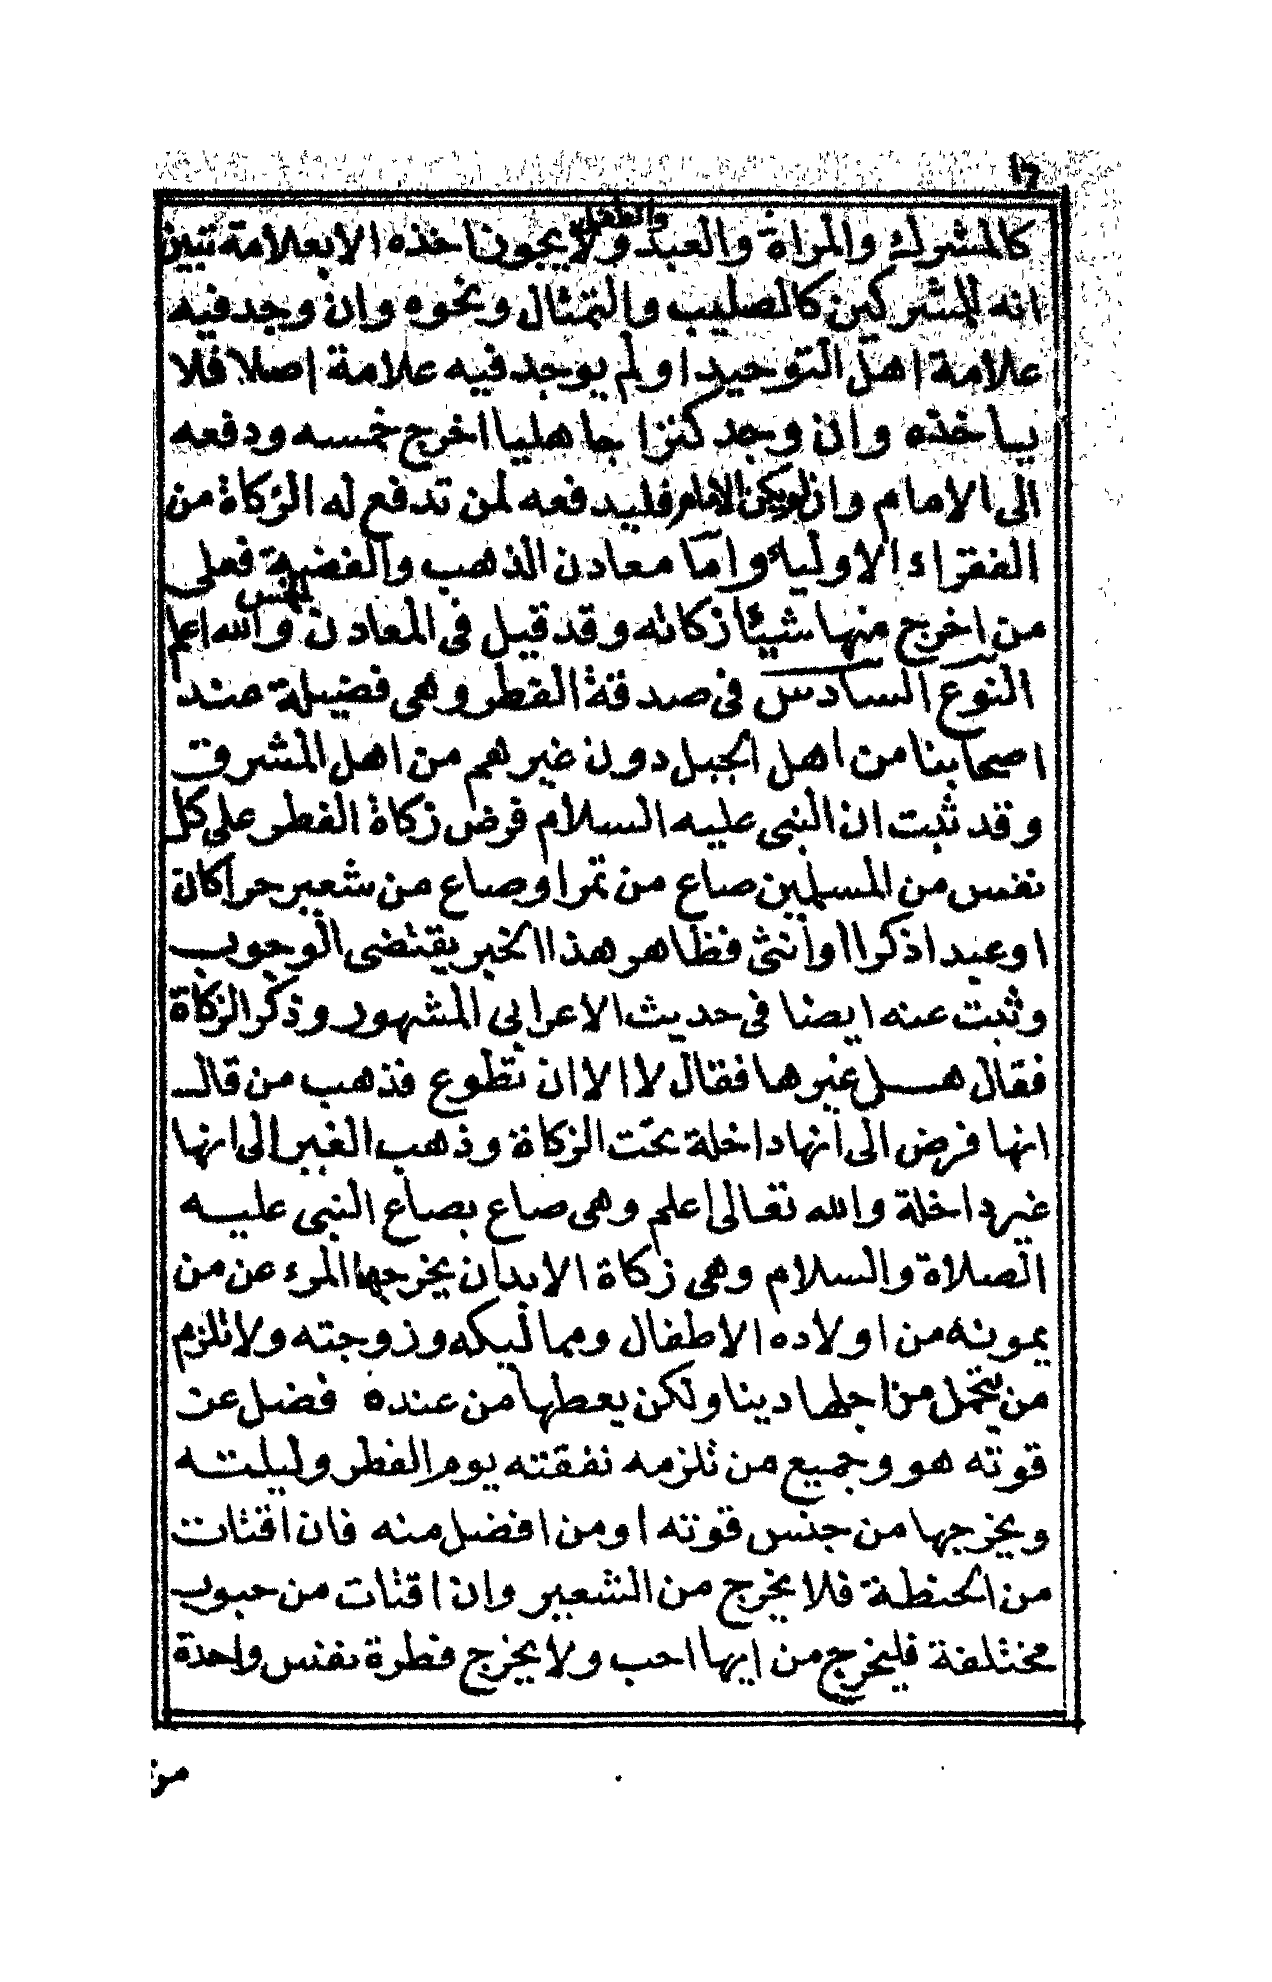 كالمشرك والمراة والعبد والطفل ولا يجوز اخذه الا بعلامة تبين
انه للمشركين كالصليب والتمثال ونحوه وان وجد فيه
علامة اهل التوحيد او لم يوجد فيه علامة اصلا فلا
ياخذه وان وجد كنزا جاهليا اخرج خمسه ودفعه
الى الامام وان لم يكن الامام فليدفعه لمن تدفع له الزكاة من
الفقراء الاولياء واما معادن الذهب والفضة فعلى
من اخرج منها شيئا زكاته وقد قيل في المعادن الخمس والله اعلم
النوع السادس في صدقة الفطر وهي فضيلة عند
اصحابنا من اهل الجبل دون غيرهم من اهل المشرق
وقد ثبت ان النبي عليه السلام فرض زكاة الفطر على كل
نفس من المسلمين صاع من تمر او صاع من شعير حرا كان
او عبدا ذكرا او انثى فظاهر هذا الخبر يقتضي الوجوب
وثبت عنه ايضا في حديث الاعرابي المشهور وذكر الزكاة
فقال هل غيرها فقال لا الا ان تطوع فذهب من قال
انها فرض الى انها داخلة تحت الزكاة وذهب الغير الى انها
غير داخلة والله تعالى اعلم وهي صاع بصاع النبي عليه
الصلاة والسلام وهي زكاة الابدان يخرجها المرء عن من
يمونه من اولاده الاطفال ومماليكه وزوجته ولا تلزم
من يتحمل من اجلها دينا ولكن يعطها من عنده فضل عن
قوته هو وجميع من تلزمه نفقته يوم الفطر وليلته
ويخرجها من جنس قوته او من افضل منه فان اقتات
من الحنطة فلا يخرج من الشعير وان اقتات من حبوب
مختلفة فليخرج من ايها احب ولا يخرج فطرة نفس واحدة
من